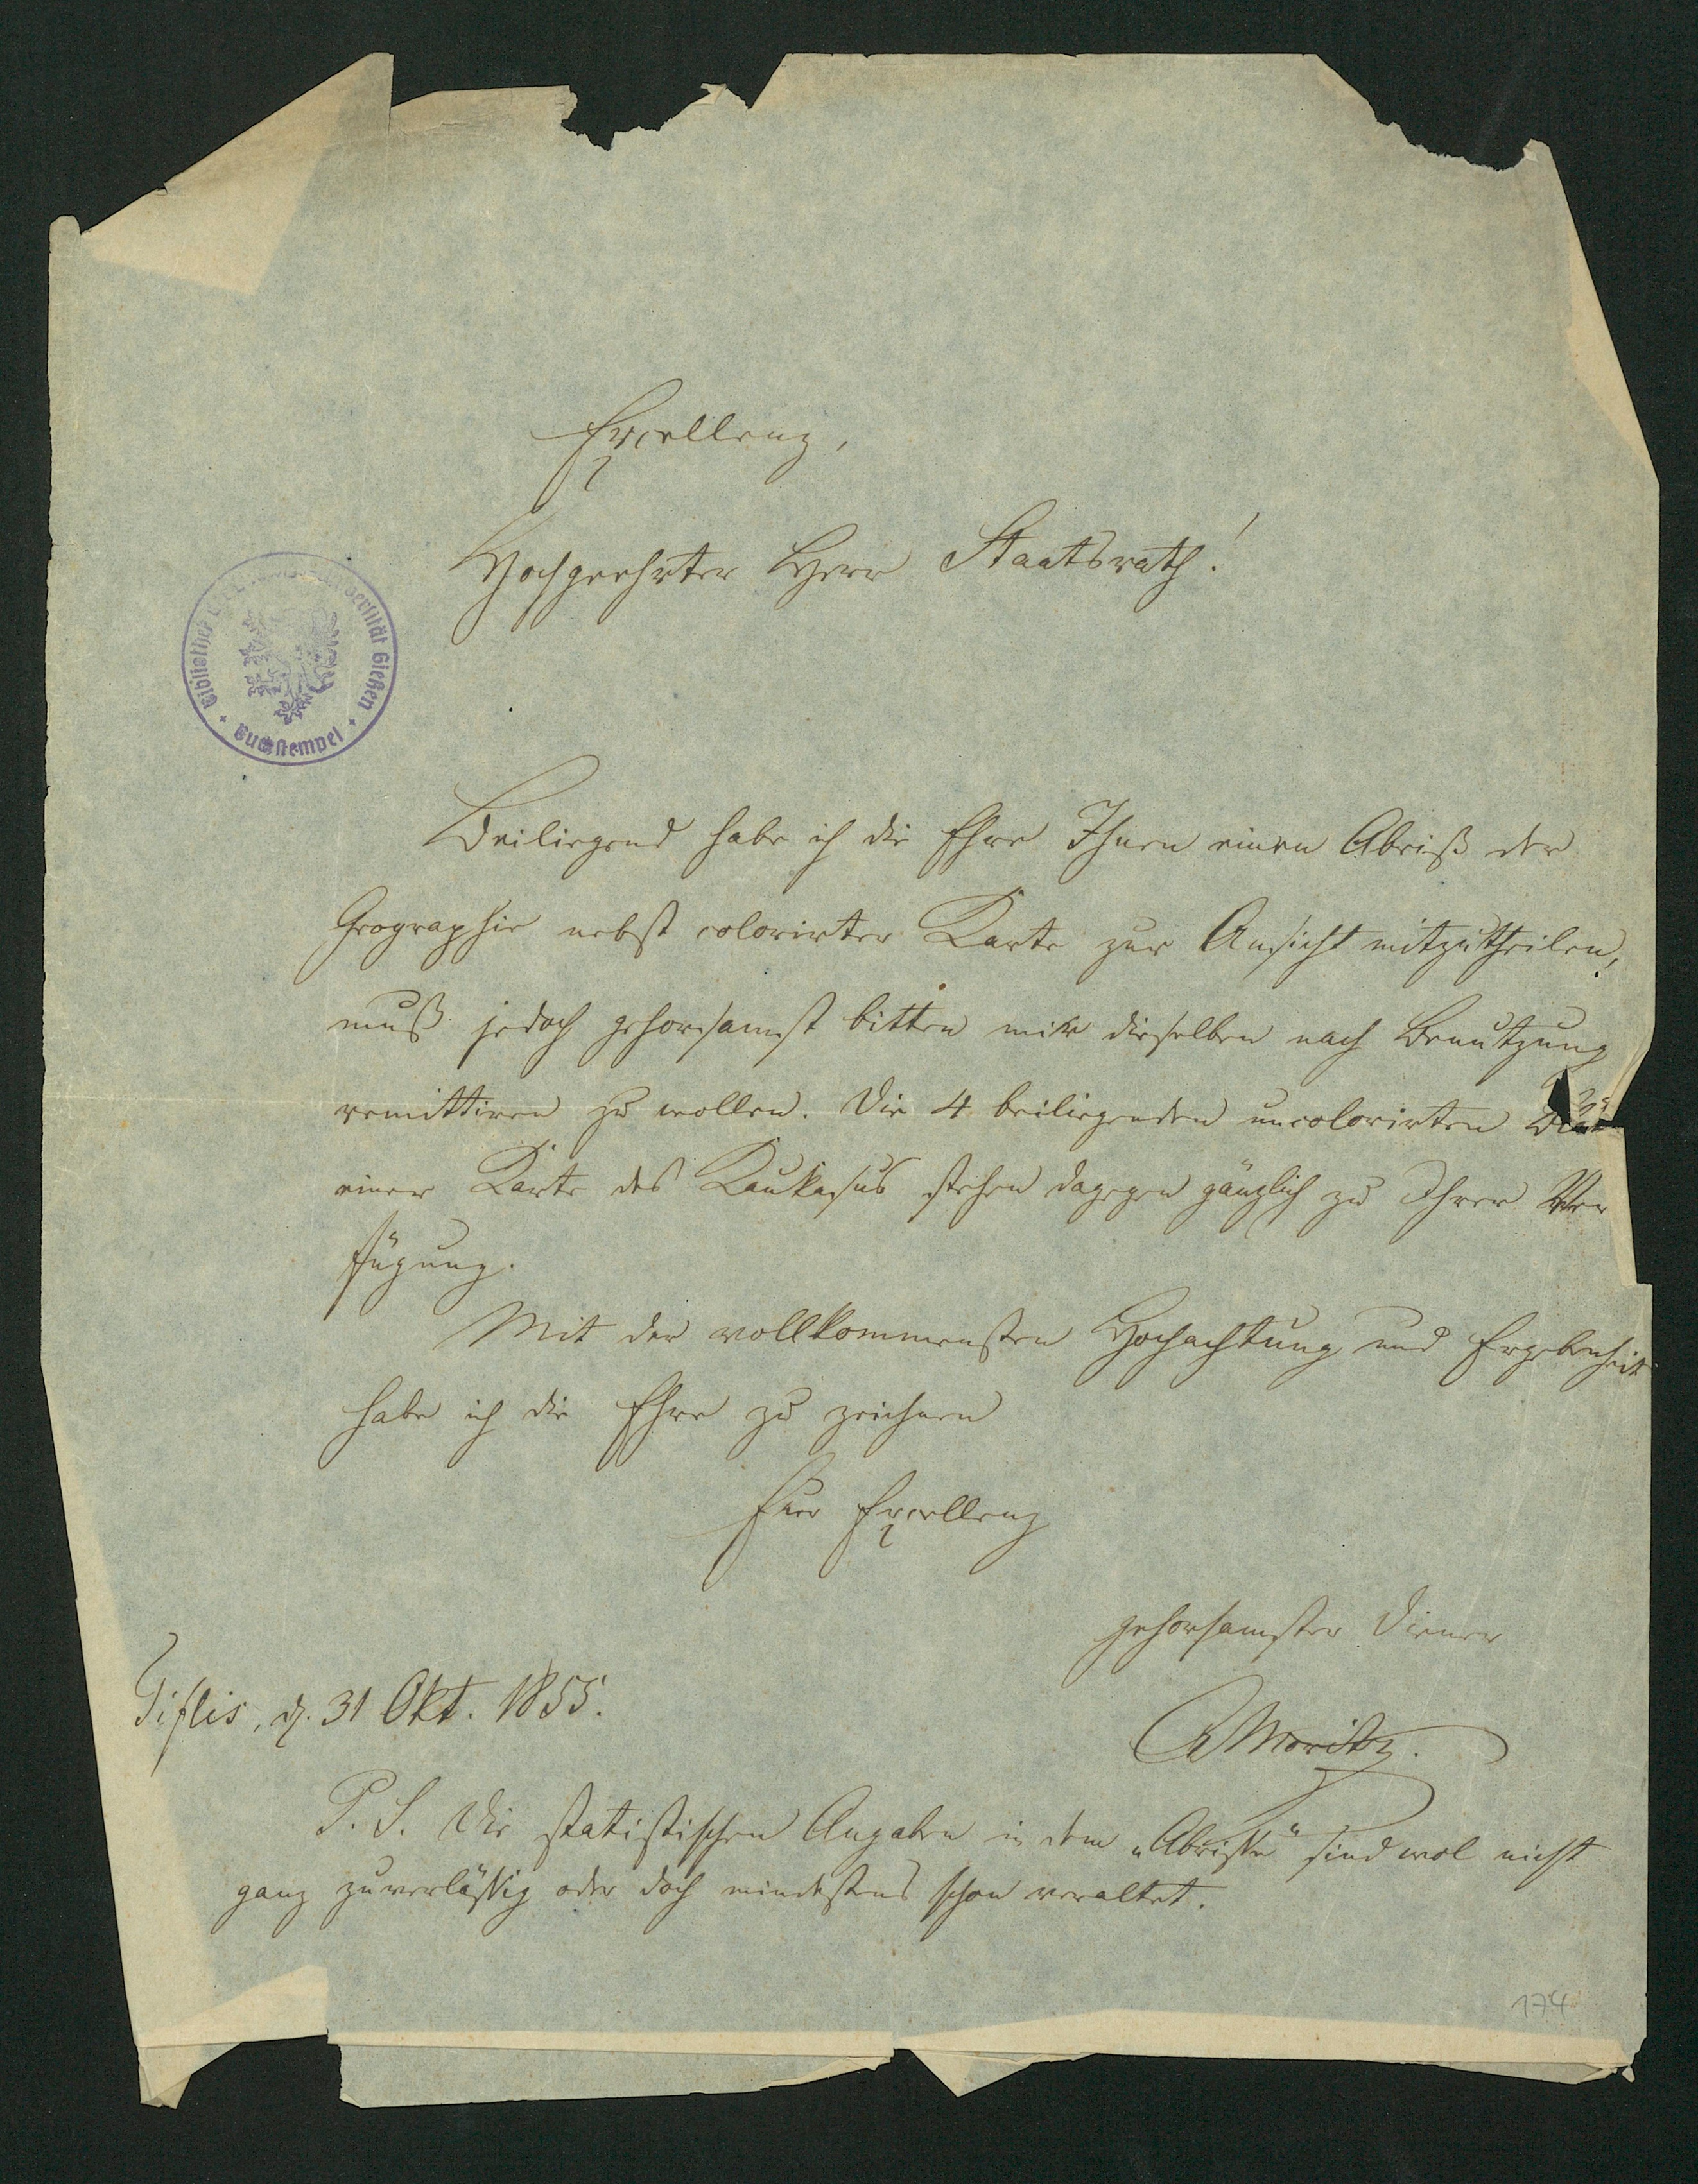 Excellenz,
Hochgeehrter Herr Staatsrath!
Bibliothek Universität Gießen
Buchstempel
Beiliegend habe ich die Ehre Ihnen einen Abriß der
Geographie nebst colorirter Karte zur Ansicht mitzutheilen,
muß jedoch gehorsamst bitten mir dieselben nach Benutzung
remittiren zu wollen. Die 4 beiliegenden uncolorirten
einer Karte des Kaukasus stehen dagegen gänzlich zu Ihrer Ver
fügung.
Mit der vollkommensten Hochachtung und Ergebenheit
habe ich die Ehre zu zeichnen
Euer Excellenz
gehorsamster Diener
Tiflis, d. 31 Okt. 1855.
AMoritz.
P. S. Die statistischen Angaben in dem „Abrisse“ sind wol nicht
ganz zuverlässig oder doch mindestens schon veraltet.
174